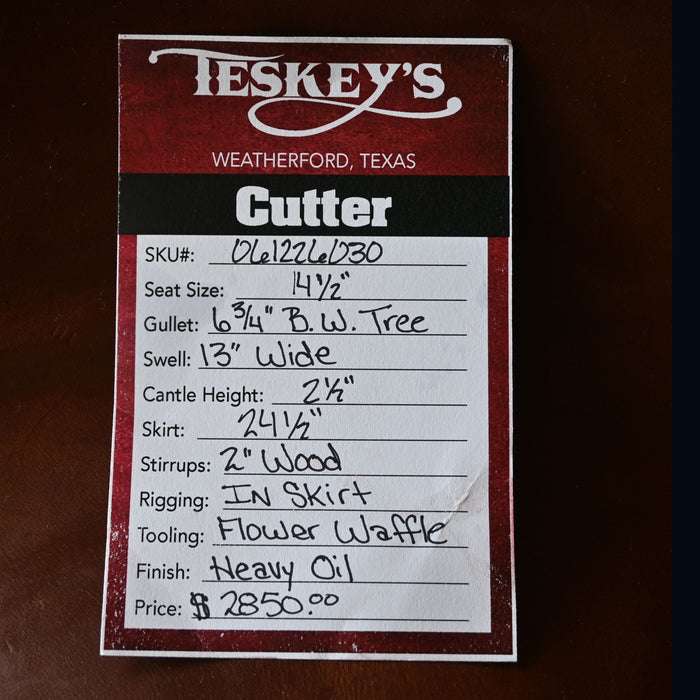 TESKEY'S
WEATHERFORD, TEXAS
Cutter
SKU#: 061226030
Seat Size: 14 1/2"
Gullet: 6 3/4" B.W. Tree
Swell: 13" Wide
Cantle Height: 2 1/2"
Skirt: 24 1/2"
Stirrups: 2" Wood
Rigging: IN Skirt
Tooling: Flower Waffle
Finish: Heavy Oil
Price: $ 2850.00